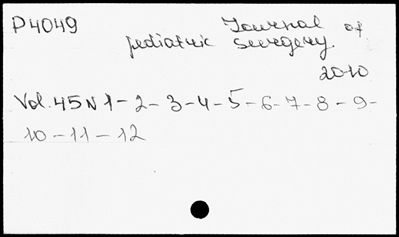 P4049 Journal of
pediatric Seurgery.
2010
Vol. 45 N 1 - 2 - 3 - 4 - 5 - 6 - 7 - 8 - 9 -
10 - 11 - 12